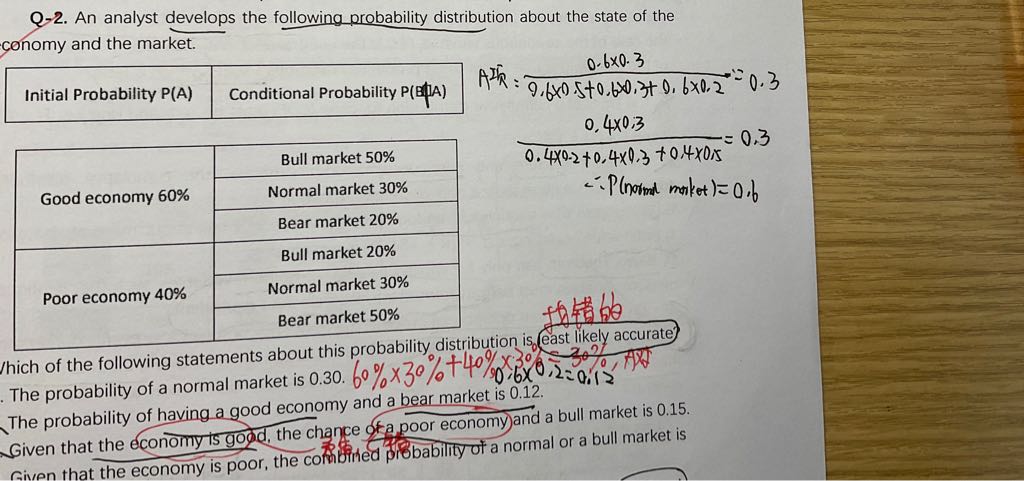 Q-2. An analyst develops the following probability distribution about the state of the
conomy and the market.
Initial Probability P(A)
Conditional Probability P(B|A)
A项: 0.6x0.3
0.6x0.5+0.6x0.3+0.6x0.2 = 0.3
0.4x0.3
0.4x0.2+0.4x0.3+0.4x0.5 = 0.3
∴P(normal market)=0.6
Good economy 60%
Bull market 50%
Normal market 30%
Bear market 20%
Poor economy 40%
Bull market 20%
Normal market 30%
Bear market 50%
找错的
hich of the following statements about this probability distribution is least likely accurate?
. The probability of a normal market is 0.30. 60%x30%+40%x30%=30%, A对
0.6x0.2=0.12
The probability of having a good economy and a bear market is 0.12.
Given that the economy is good, the chance of a poor economy and a bull market is 0.15.
Given that the economy is poor, the combined probability of a normal or a bull market is